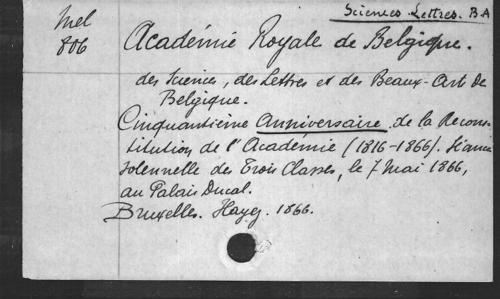 Sciences Lettres. B A
Mel
806
Académie Royale de Belgique.
des Sciences, des Lettres et des Beaux-Art de
Belgique.
Cinquantième Anniversaire de la Recons-
titution de l'Académie (1816-1866). Séance
solennelle des Trois Classes, le 7 Mai 1866,
au Palais Ducal.
Bruxelles. Hayez. 1866.